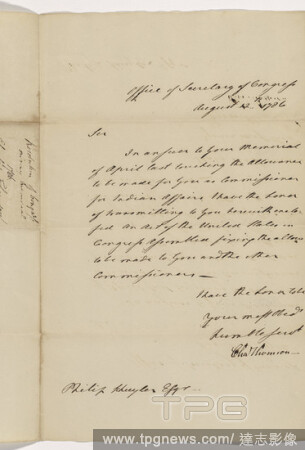 Office of Secretary of Congress
August 12. 1786
Sir
In answer to Your Memorial
of April last touching the Allowance
to be made for You as Commissioner
for Indian Affairs I have the honor
of transmitting to You herewith enclo
sed An Act of the United States in
Congress Assembled fixing the allowance
to be made to You and the other
Commissioners—
I have the honor to be
Your most Obedt
humble Servt
Chas Thomson
Philip Schuyler Esqr.
TPG
www.tpgnews.com / 達志影像